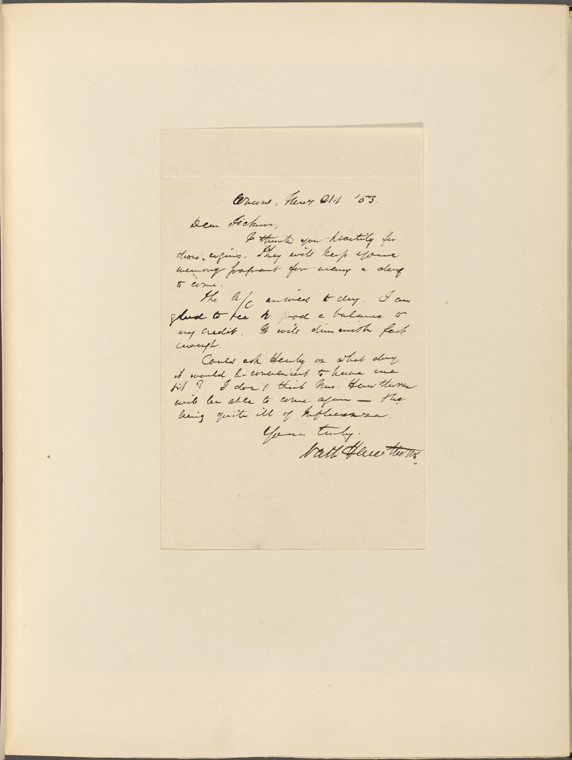 '53.
Dear Ticknor,
I thank you heartily for
those cigars. They will keep your
memory fragrant for many a day
to come.
The A/C arrived to day. I am
glad to see so good a balance to
my credit. It will diminish fast
enough.
Could ask Healy on what day
it would be convenient to have me
sit? I don't think Mrs. Hawthorne
will be able to come again — she
being quite ill of Influenza.
Yours truly,
Nath Hawthorne.